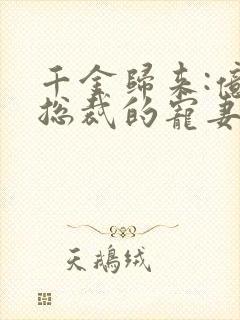 千金歸来:億
總裁的寵妻
天鵝絨